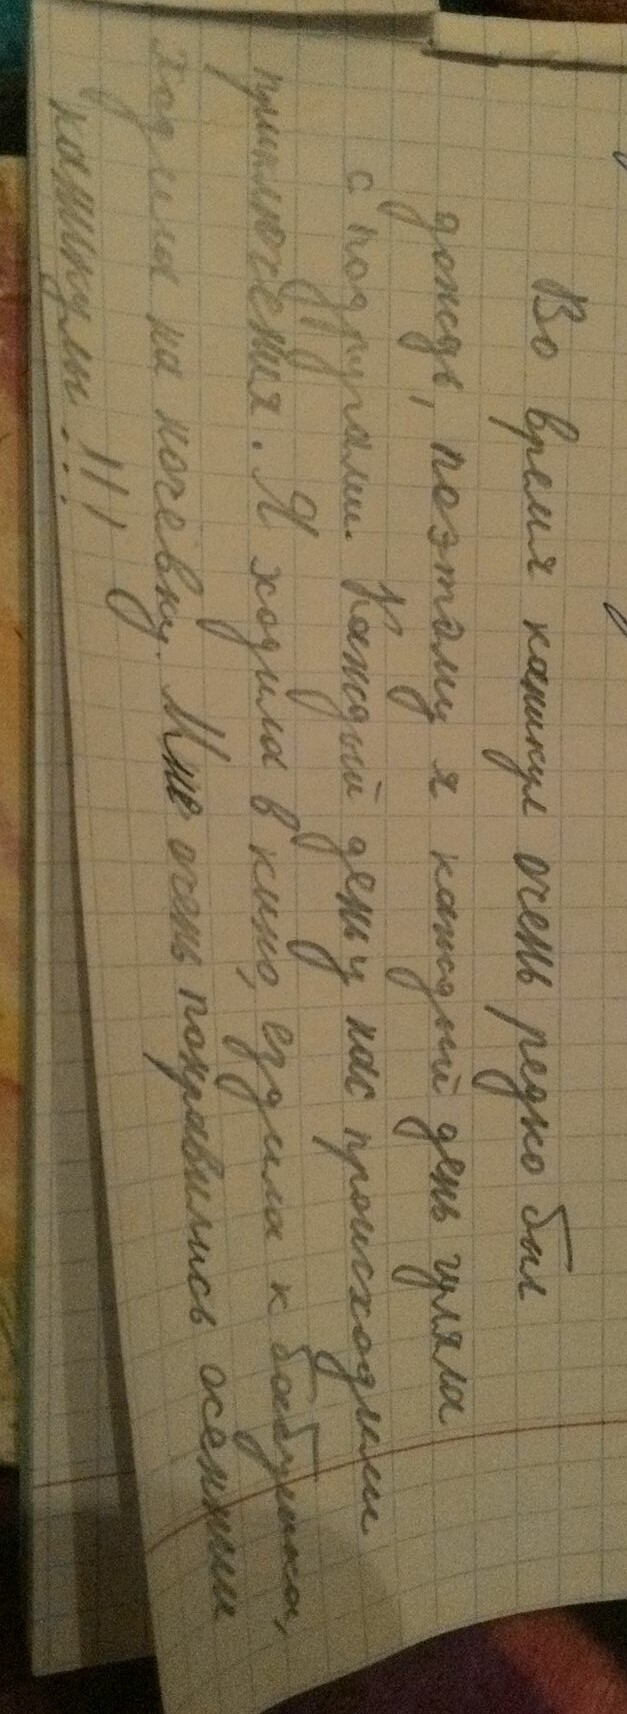 Во время каникул очень редко был
дождь, поэтому я каждый день гуляла
с подругами. Каждый день у нас происходили
приключения. Я ходила в кино, ездила к бабушка,
ходила на ночёвку. Мне очень понравились осенние
каникулы!!!